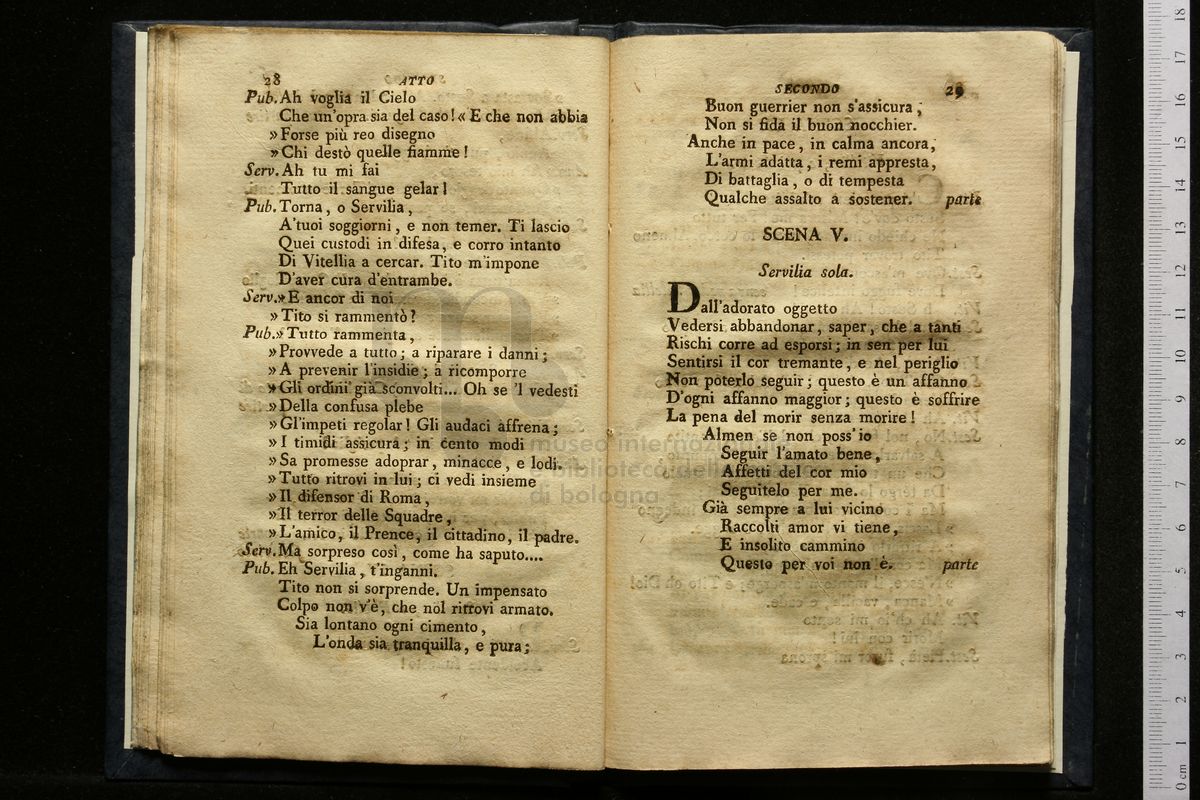 28 ATTO
Pub. Ah voglia il Cielo
Che un'opra sia del caso! « E che non abbia
» Forse più reo disegno
» Chi destò quelle fiamme!
Serv. Ah tu mi fai
Tutto il sangue gelar!
Pub. Torna, o Servilia,
A'tuoi soggiorni, e non temer. Ti lascio
Quei custodi in difesa, e corro intanto
Di Vitellia a cercar. Tito m'impone
D'aver cura d'entrambe.
Serv. » E ancor di noi
» Tito si rammentò?
Pub. » Tutto rammenta,
» Provvede a tutto; a riparare i danni;
» A prevenir l'insidie; a ricomporre
» Gli ordini già sconvolti... Oh se 'l vedesti
» Della confusa plebe
» Gl'impeti regolar! Gli audaci affrena;
» I timidi assicura; in cento modi
» Sa promesse adoprar, minacce, e lodi.
» Tutto ritrovi in lui; ci vedi insieme
» Il difensor di Roma,
» Il terror delle Squadre,
» L'amico, il Prence, il cittadino, il padre.
Serv. Ma sorpreso così, come ha saputo....
Pub. Eh Servilia, t'inganni.
Tito non si sorprende. Un impensato
Colpo non v'è, che nol ritrovi armato.
Sia lontano ogni cimento,
L'onda sia tranquilla, e pura;
SECONDO 29
Buon guerrier non s'assicura,
Non si fida il buon nocchier.
Anche in pace, in calma ancora,
L'armi adatta, i remi appresta,
Di battaglia, o di tempesta
Qualche assalto a sostener. parte
SCENA V.
Servilia sola.
Dall'adorato oggetto
Vedersi abbandonar, saper, che a tanti
Rischi corre ad esporsi; in sen per lui
Sentirsi il cor tremante, e nel periglio
Non poterlo seguir; questo è un affanno
D'ogni affanno maggior; questo è soffrire
La pena del morir senza morire!
Almen se non poss'io
Seguir l'amato bene,
Affetti del cor mio
Seguitelo per me.
Già sempre a lui vicino
Raccolti amor vi tiene,
E insolito cammino
Questo per voi non è. parte
museo internazionale
e biblioteca della musica
di bologna
0 cm 1 2 3 4 5 6 7 8 9 10 11 12 13 14 15 16 17 18